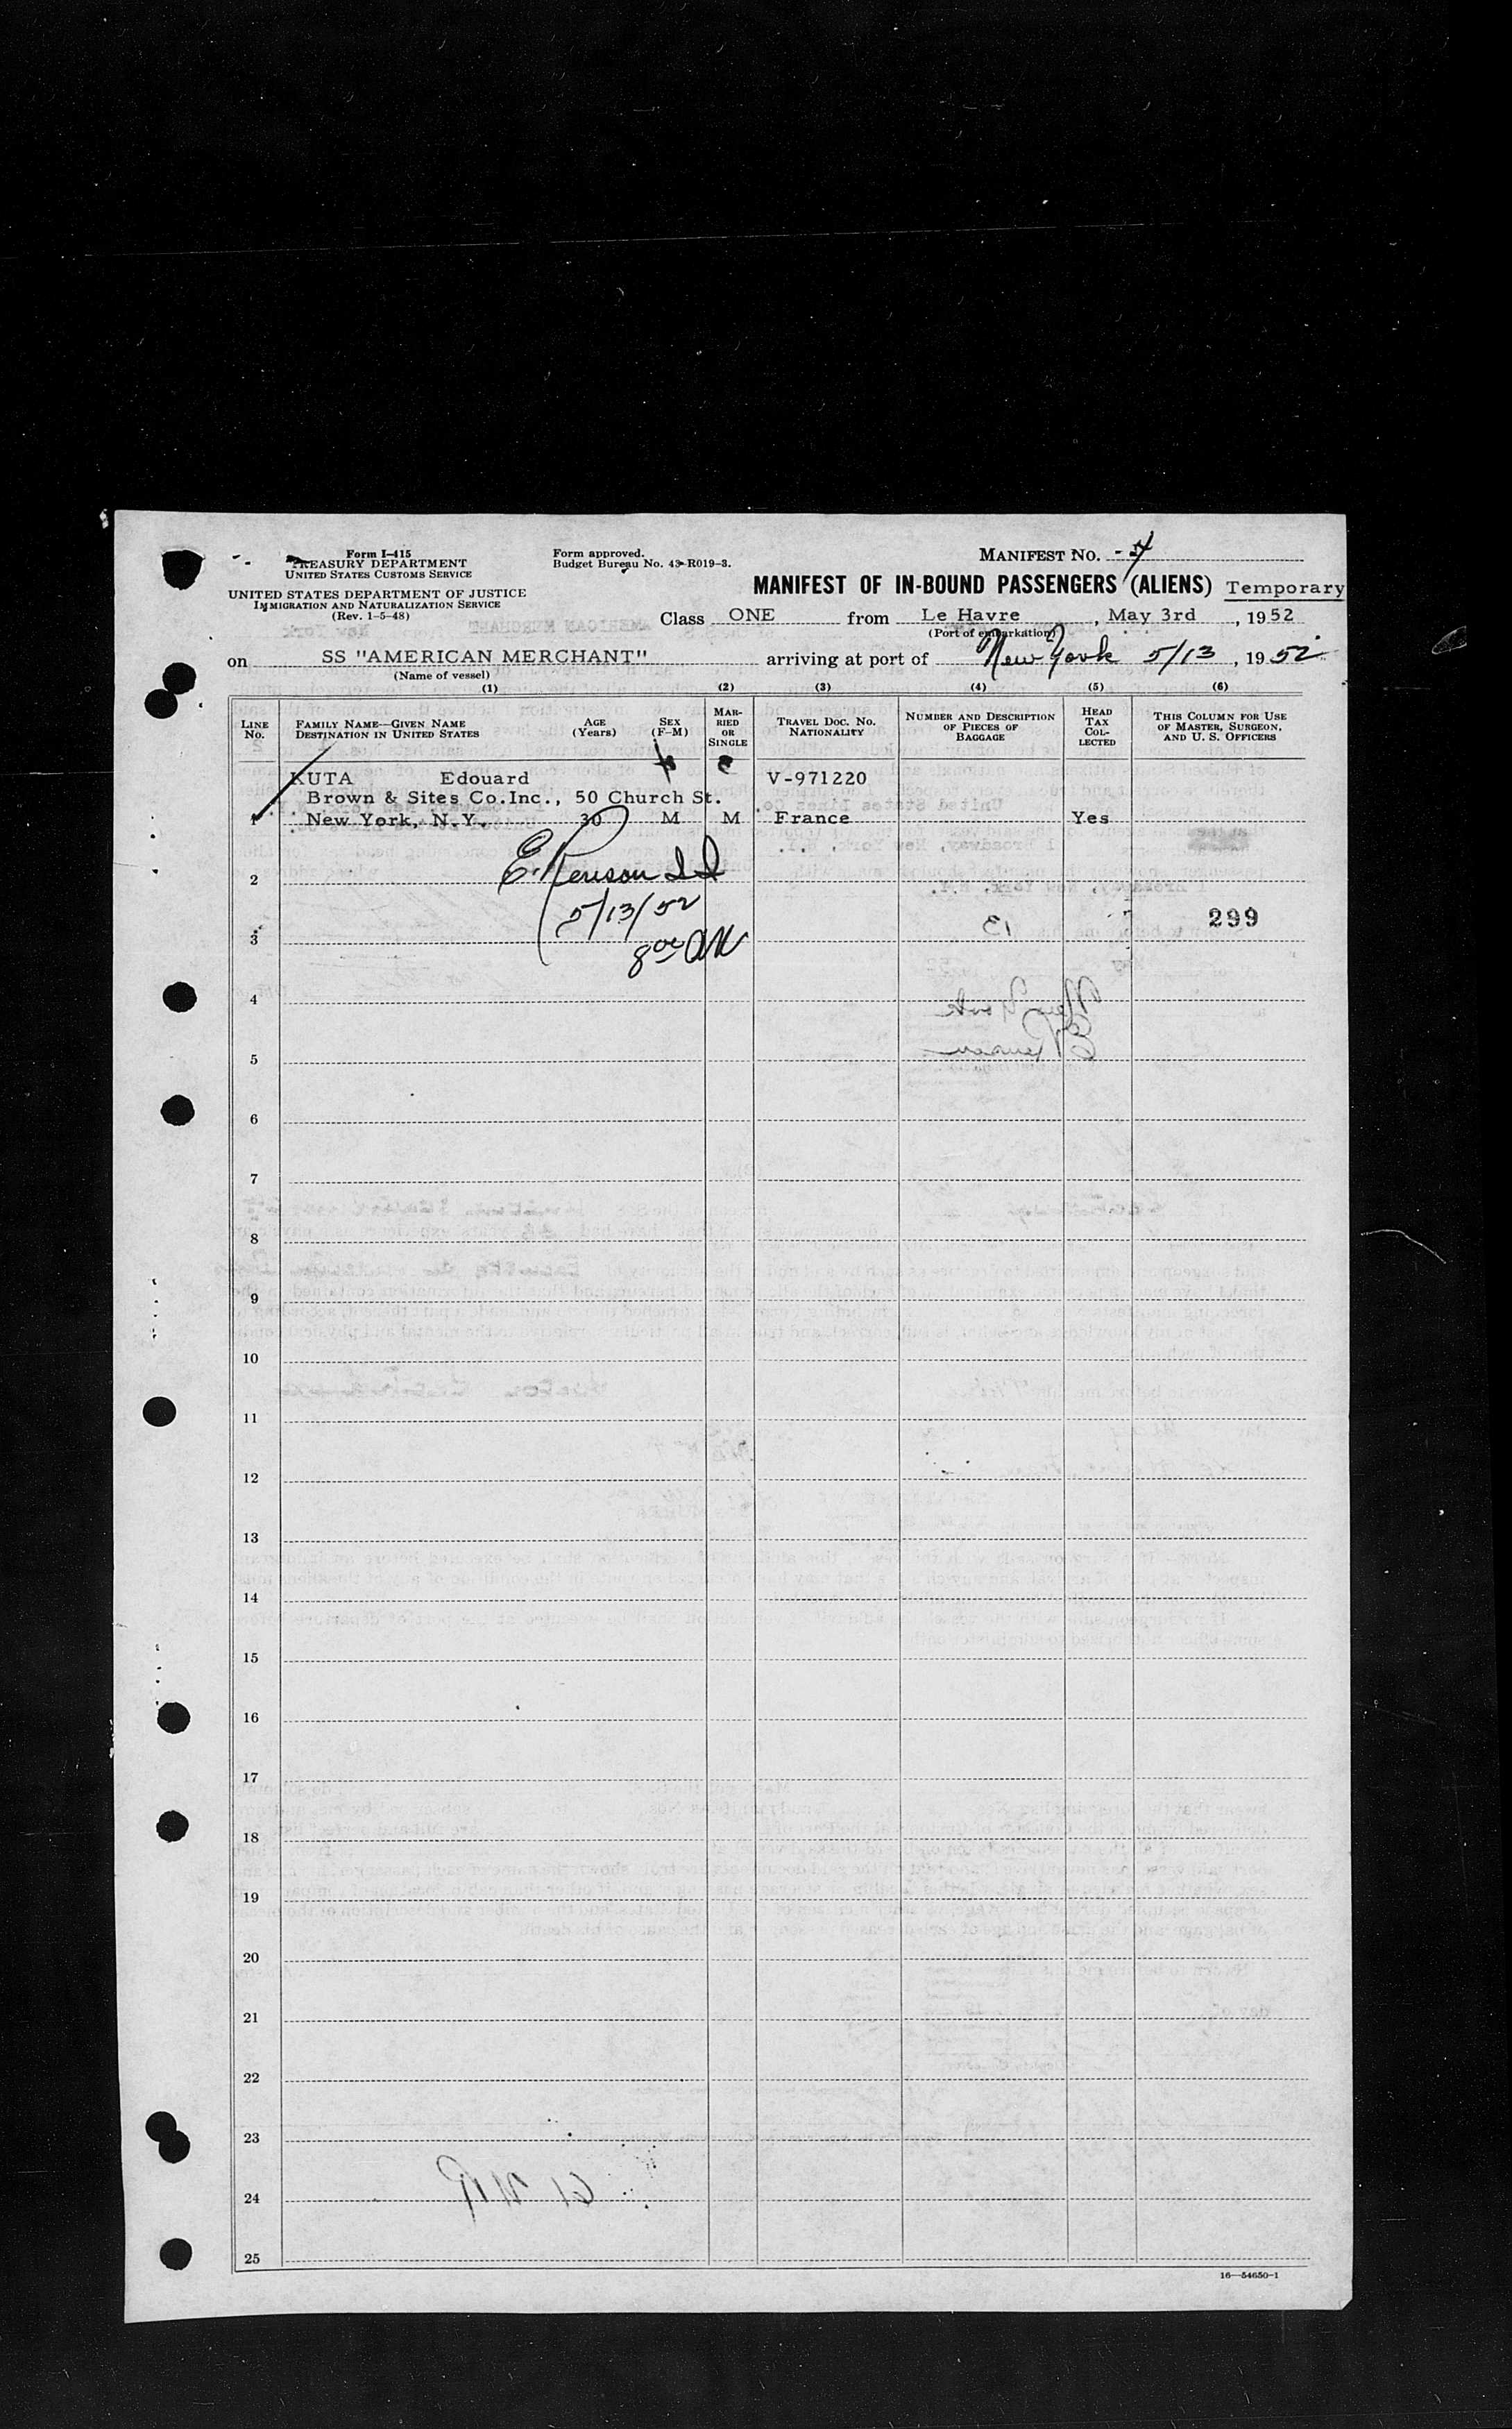 Form I-415
TREASURY DEPARTMENT
UNITED STATES CUSTOMS SERVICE
UNITED STATES DEPARTMENT OF JUSTICE
IMMIGRATION AND NATURALIZATION SERVICE
(Rev. 1-5-48)
Form approved.
Budget Bureau No. 43-R019-3.
MANIFEST NO.
MANIFEST OF IN-BOUND PASSENGERS (ALIENS) Temporary
Class ONE from Le Havre, May 3rd, 1952
(Port of embarkation)
on SS "AMERICAN MERCHANT" arriving at port of New York 5/13, 1952
(Name of vessel)
(1) (2) (3) (4) (5) (6)
LINE No.
FAMILY NAME—GIVEN NAME
DESTINATION IN UNITED STATES
AGE (Years)
SEX (F-M)
MARRIED OR SINGLE
TRAVEL DOC. NO. NATIONALITY
NUMBER AND DESCRIPTION OF PIECES OF BAGGAGE
HEAD TAX COLLECTED
THIS COLUMN FOR USE OF MASTER, SURGEON, AND U. S. OFFICERS
KUTA Edouard V-971220
Brown & Sites Co.Inc., 50 Church St.
1 New York, N.Y. 30 M M France Yes
2
5/13/52
299
3
8 00 AM
4
5
6
7
8
9
10
11
12
13
14
15
16
17
18
19
20
21
22
23
24
25
16—54650-1